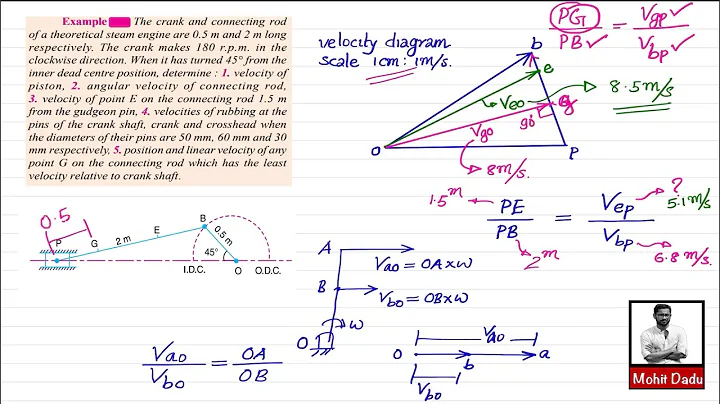 Example The crank and connecting rod
of a theoretical steam engine are 0.5 m and 2 m long
respectively. The crank makes 180 r.p.m. in the
clockwise direction. When it has turned 45° from the
inner dead centre position, determine : 1. velocity of
piston, 2. angular velocity of connecting rod,
3. velocity of point E on the connecting rod 1.5 m
from the gudgeon pin, 4. velocities of rubbing at the
pins of the crank shaft, crank and crosshead when
the diameters of their pins are 50 mm, 60 mm and 30
mm respectively, 5. position and linear velocity of any
point G on the connecting rod which has the least
velocity relative to crank shaft.
velocity diagram
scale 1cm: 1m/s.
b
e
Veo
8.5m/s
g
90°
Vgo
o
P
8m/s.
PG/PB = Vgp/Vbp
1.5m
PE/PB = Vep/Vbp
?
5.1m/s
2m
6.8m/s.
0.5
P
G
2 m
E
B
0.5 m
45°
I.D.C.
O
O.D.C.
A
Vao = OA×ω
B
Vbo = OB×ω
ω
O
Vao/Vbo = OA/OB
Vao
o
b
a
Vbo
Mohit Dadu